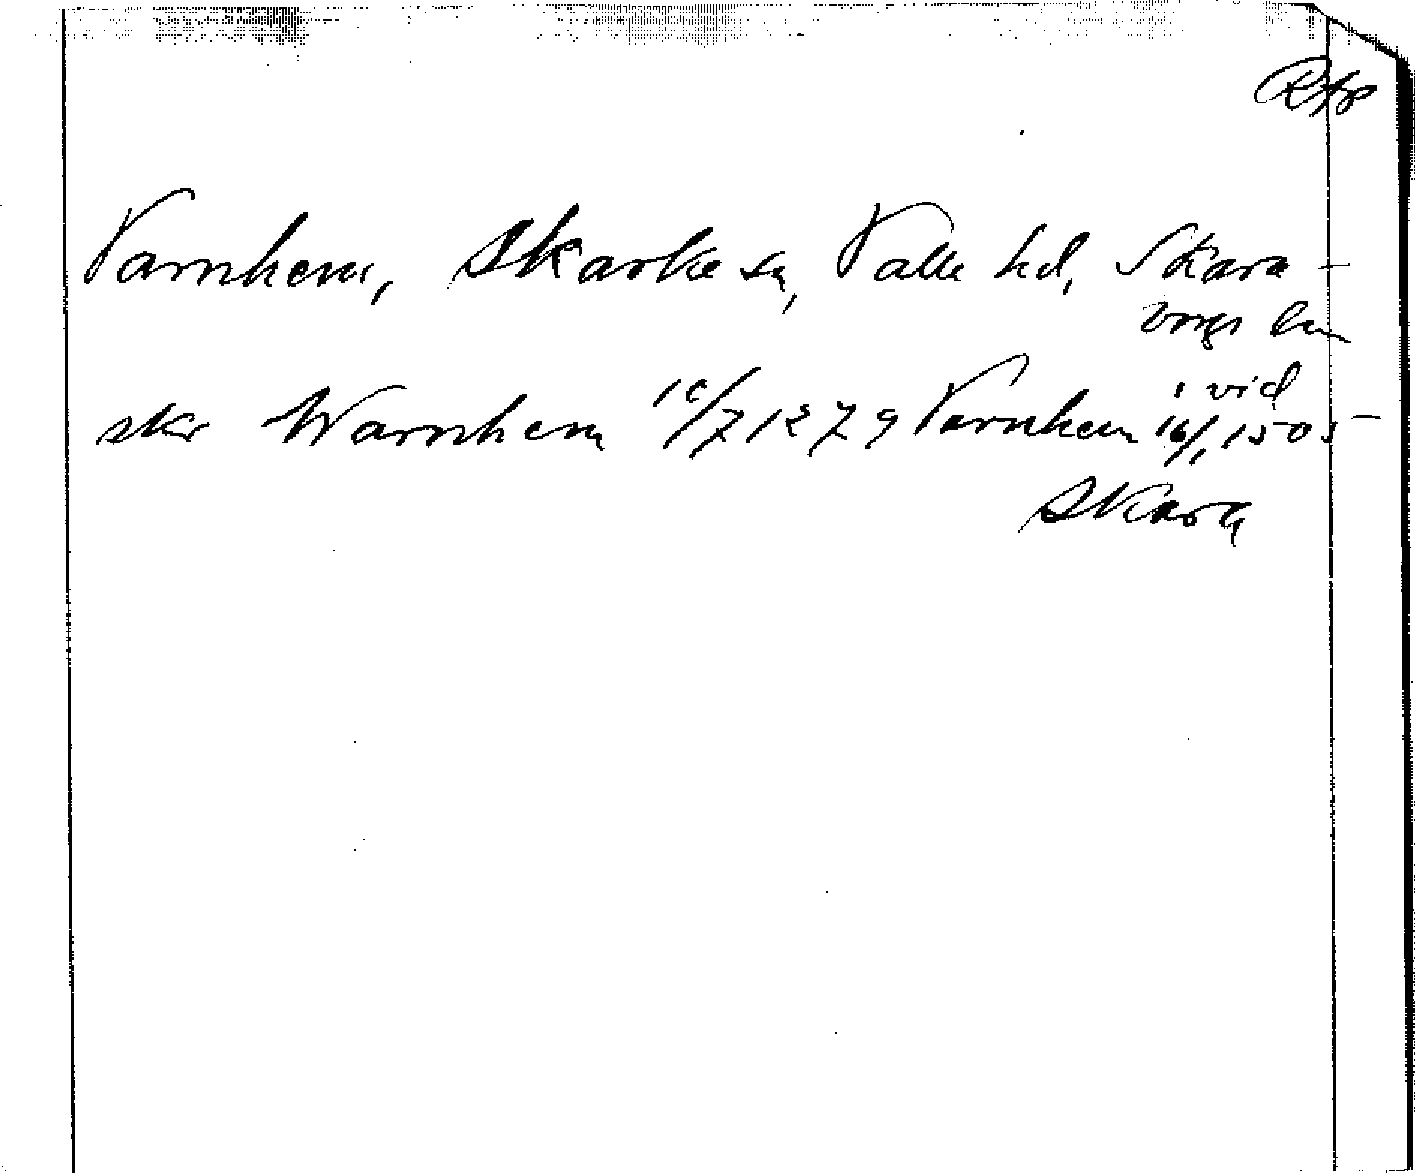 Rap
Varnhem, Skarke sn, Valle hd, Skara-
borgs län
skr Warnhem 10/7 1279 Varnhem 16/1 1505
i vid
Skara